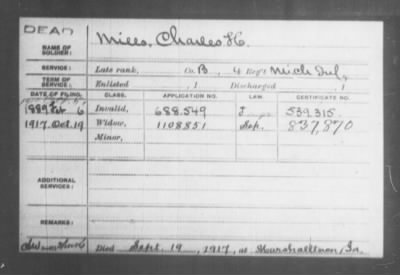 DEAD
NAME OF SOLDIER: Mills, Charles H.
SERVICE: Late rank, Co. B, 4 Reg't Mich Inf,
TERM OF SERVICE: Enlisted , 1 Discharged , 1
DATE OF FILING. CLASS. APPLICATION NO. LAW. CERTIFICATE NO.
1889 Feb 6 Invalid, 688.549 J 539.315
1917. Oct. 19 Widow, 1108851 837,870
Minor,
ADDITIONAL SERVICES:
REMARKS:
Died Sept. 19, 1917, at Marshalltown, Ia.